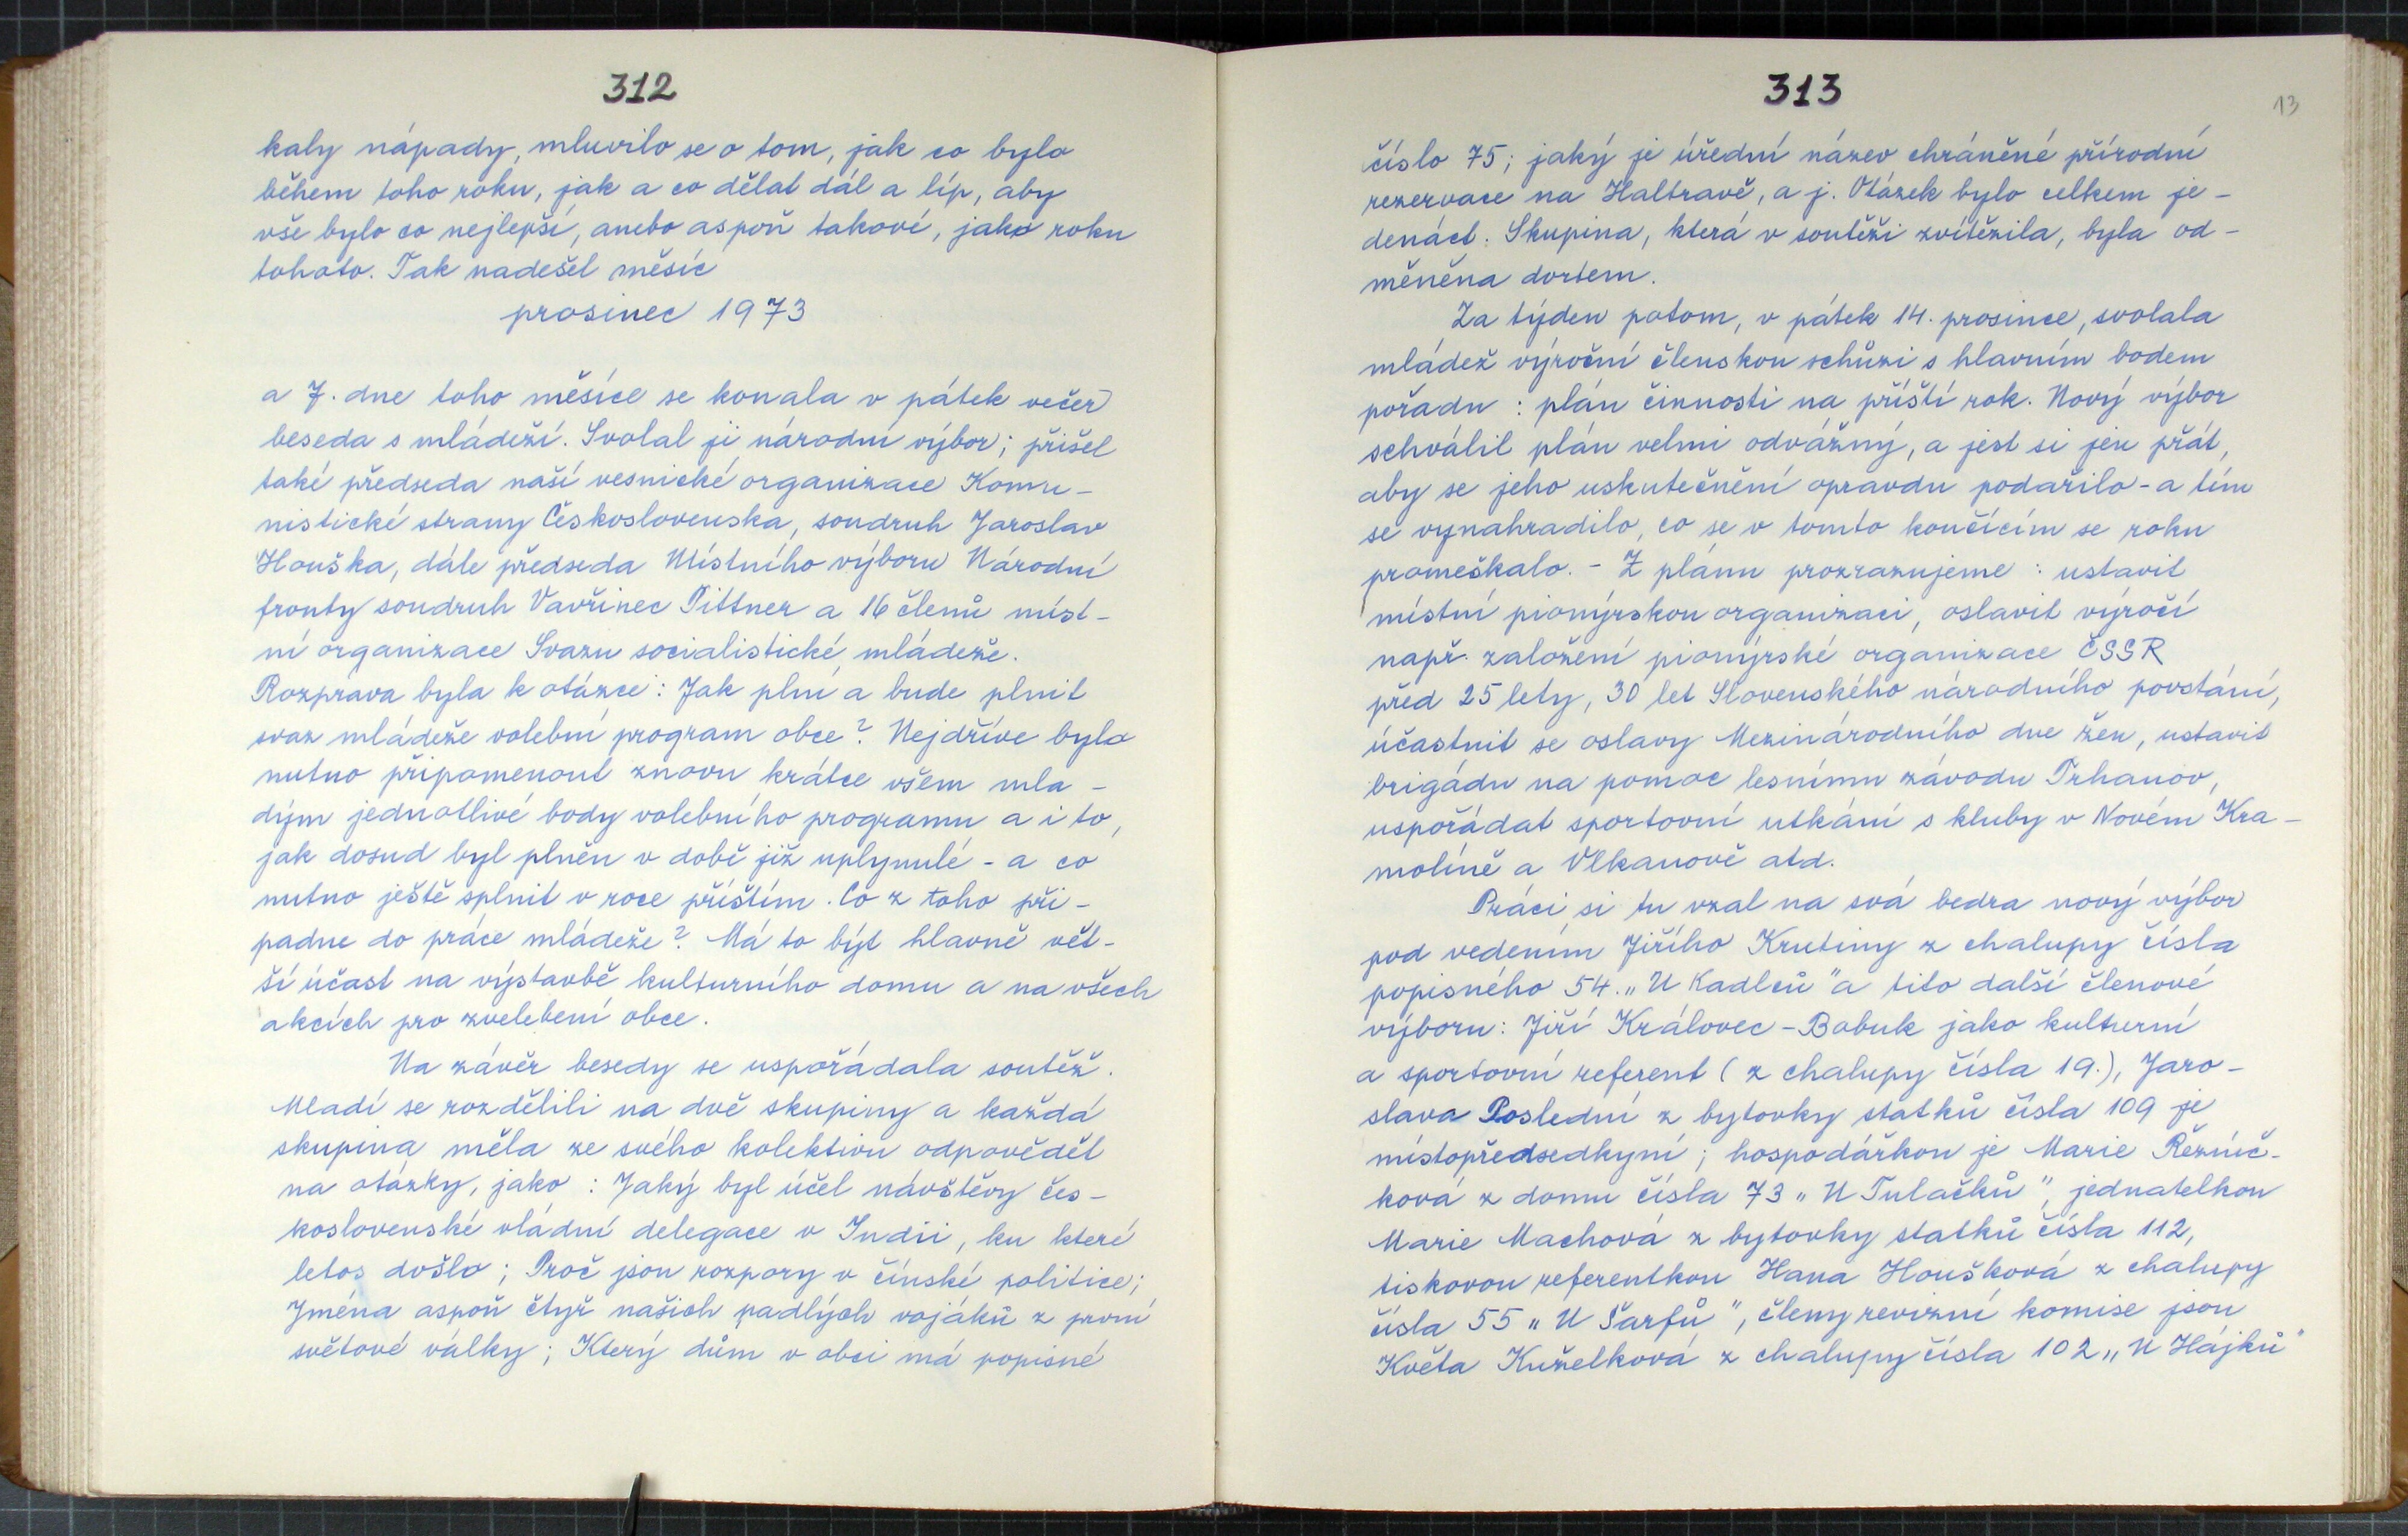 312
kaly nápady, mluvilo se o tom, jak co bylo
během toho roku, jak a co dělat dál a líp, aby
vše bylo co nejlepší, anebo aspoň takové, jako roku
tohoto. Tak nadešel měsíc
prosinec 1973
a 7. dne toho měsíce se konala v pátek večer
beseda s mládeží. Svolal ji národní výbor; přišel
také předseda naší vesnické organizace Komu-
nistické strany Československa, soudruh Jaroslav
Houška, dále předseda Místního výboru Národní
fronty soudruh Vavřinec Pittner a 16 členů míst-
ní organizace Svazu socialistické mládeže.
Rozprava byla k otázce: Jak plní a bude plnit
svaz mládeže volební program obce? Nejdříve bylo
nutno připomenout znovu krátce všem mla-
dým jednotlivé body volebního programu a i to,
jak dosud byl plněn v době již uplynulé - a co
nutno ještě splnit v roce příštím. Co z toho při-
padne do práce mládeže? Má to být hlavně vět-
ší účast na výstavbě kulturního domu a na všech
akcích pro zvelebení obce.
Na závěr besedy se uspořádala soutěž.
Mladí se rozdělili na dvě skupiny a každá
skupina měla ze svého kolektivu odpovědět
na otázky, jako: Jaký byl účel návštěvy čes-
koslovenské vládní delegace v Indii, ku které
letos došlo; Proč jsou rozpory v čínské politice;
Jména aspoň čtyř našich padlých vojáků z první
světové války; Který dům v obci má popisné
313
13
číslo 75; jaký je úřední název chráněné přírodní
rezervace na Haltravě, a j. Otázek bylo celkem je-
denáct. Skupina, která v soutěži zvítězila, byla od-
měněna dortem.
Za týden potom, v pátek 14. prosince, svolala
mládež výroční členskou schůzi s hlavním bodem
pořadu: plán činnosti na příští rok. Nový výbor
schválil plán velmi odvážný, a jest si jen přát,
aby se jeho uskutečnění opravdu podařilo - a tím
se vynahradilo, co se v tomto končícím se roku
promeškalo. - Z plánu prozrazujeme: ustavit
místní pionýrskou organizaci, oslavit výročí
např. založení pionýrské organizace ČSSR
před 25 lety, 30 let Slovenského národního povstání,
účastnit se oslavy Mezinárodního dne žen, ustavit
brigádu na pomoc lesnímu závodu Trhanov,
uspořádat sportovní utkání s kluby v Novém Kra-
molíně a Vlkanově atd.
Práci si tu vzal na svá bedra nový výbor
pod vedením Jiřího Krutiny z chalupy čísla
popisného 54. „U Kadlců" a tito další členové
výboru: Jiří Královec - Bobuk jako kulturní
a sportovní referent (z chalupy čísla 19.), Jaro-
slava Poslední z bytovky statků čísla 109 je
místopředsedkyní; hospodářkou je Marie Řezníč-
ková z domu čísla 73 „U Tulačků", jednatelkou
Marie Machová z bytovky statků čísla 112,
tiskovou referentkou Hana Houšková z chalupy
čísla 55 „U Šarfů", členy revizní komise jsou
Květa Kuželková z chalupy čísla 102 „U Hájků"